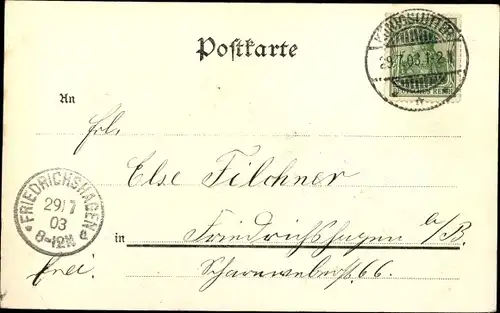 KÖNIGSLUTTER
29.7.03.1-2N
DEUTSCHES REICH
Postkarte
An
Frl.
Else Filchner
FRIEDRICHSHAGEN
29/7
03
8-12N
a
in Friedrichshagen a/B.
frei.
Scharnweberst. 66.